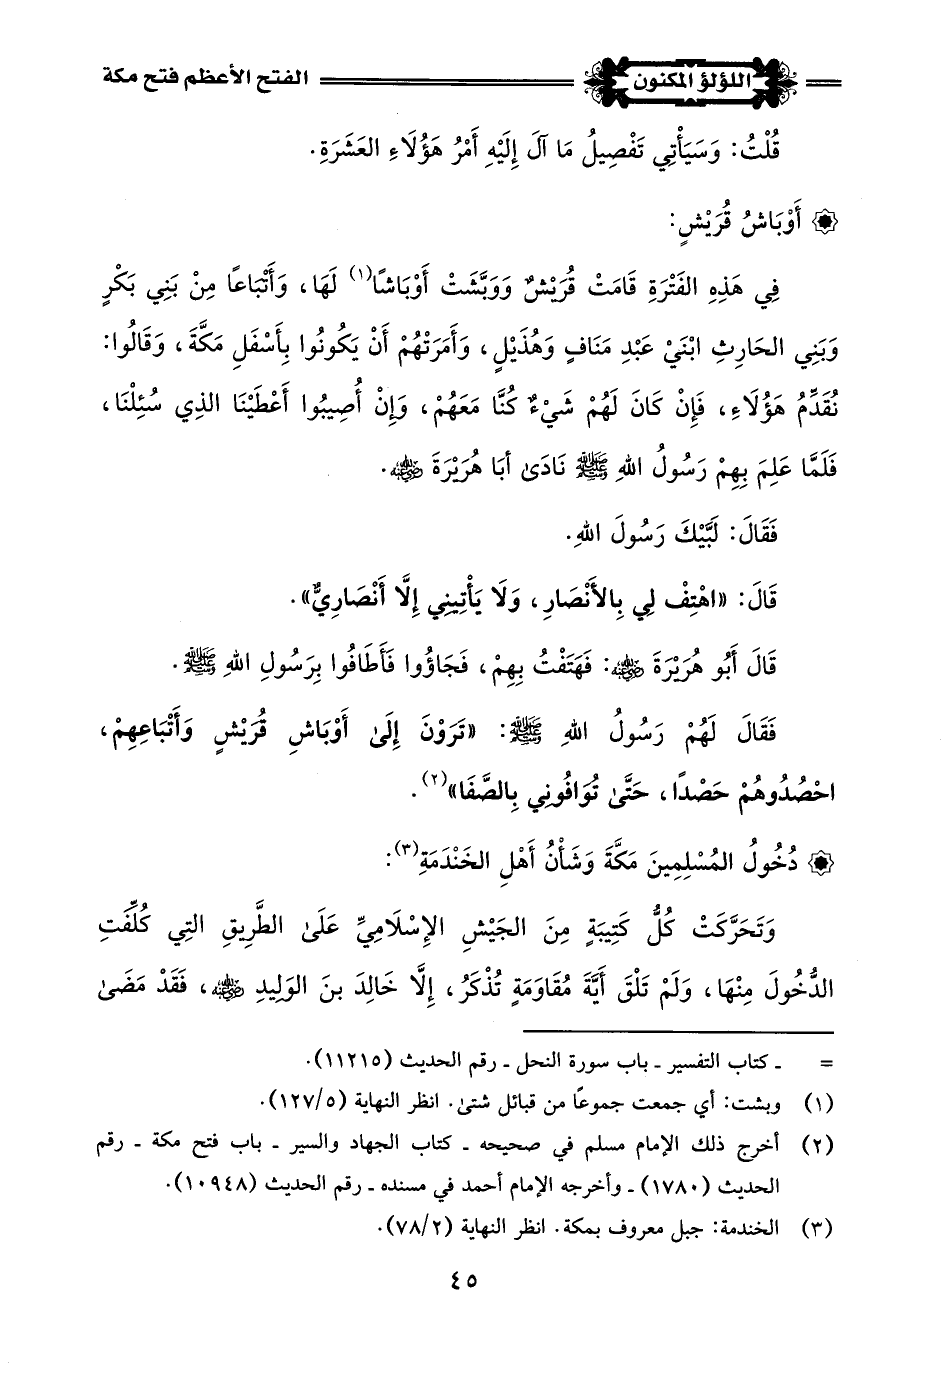 اللؤلؤ المكنون
الفتح الأعظم فتح مكة
قُلْتُ: وَسَيَأْتِي تَفْصِيلُ مَا آلَ إِلَيْهِ أَمْرُ هَؤُلَاءِ العَشَرَةِ.
أَوْبَاشُ قُرَيْشٍ:
فِي هَذِهِ الفَتْرَةِ قَامَتْ قُرَيْشٌ وَوَبَّشَتْ أَوْبَاشًا(١) لَهَا، وَأَتْبَاعًا مِنْ بَنِي بَكْرٍ
وَبَنِي الحَارِثِ ابْنَيْ عَبْدِ مَنَافٍ وَهُذَيْلٍ، وَأَمَرَتْهُمْ أَنْ يَكُونُوا بِأَسْفَلِ مَكَّةَ، وَقَالُوا:
نُقَدِّمُ هَؤُلَاءِ، فَإِنْ كَانَ لَهُمْ شَيْءٌ كُنَّا مَعَهُمْ، وَإِنْ أُصِيبُوا أَعْطَيْنَا الذِي سُئِلْنَا،
فَلَمَّا عَلِمَ بِهِمْ رَسُولُ اللهِ ﷺ نَادَىٰ أَبَا هُرَيْرَةَ رضي الله عنه.
فَقَالَ: لَبَّيْكَ رَسُولَ اللهِ.
قَالَ: «اهْتِفْ لِي بِالأَنْصَارِ، وَلَا يَأْتِينِي إِلَّا أَنْصَارِيٌّ».
قَالَ أَبُو هُرَيْرَةَ رضي الله عنه: فَهَتَفْتُ بِهِمْ، فَجَاؤُوا فَأَطَافُوا بِرَسُولِ اللهِ ﷺ.
فَقَالَ لَهُمْ رَسُولُ اللهِ ﷺ: «تَرَوْنَ إِلَىٰ أَوْبَاشِ قُرَيْشٍ وَأَتْبَاعِهِمْ،
احْصُدُوهُمْ حَصْدًا، حَتَّىٰ تُوَافُونِي بِالصَّفَا»(٢).
دُخُولُ المُسْلِمِينَ مَكَّةَ وَشَأْنُ أَهْلِ الخَنْدَمَةِ(٣):
وَتَحَرَّكَتْ كُلُّ كَتِيبَةٍ مِنَ الجَيْشِ الإِسْلَامِيِّ عَلَىٰ الطَّرِيقِ التِي كُلِّفَتِ
الدُّخُولَ مِنْهَا، وَلَمْ تَلْقَ أَيَّةَ مُقَاوَمَةٍ تُذْكَرُ، إِلَّا خَالِدَ بنَ الوَلِيدِ رضي الله عنه، فَقَدْ مَضَىٰ
= ـ كتاب التفسير ـ باب سورة النحل ـ رقم الحديث (١١٢١٥).
(١) وبشت: أي جمعت جموعًا من قبائل شتىٰ. انظر النهاية (١٢٧/٥).
(٢) أخرج ذلك الإمام مسلم في صحيحه ـ كتاب الجهاد والسير ـ باب فتح مكة ـ رقم
الحديث (١٧٨٠) ـ وأخرجه الإمام أحمد في مسنده ـ رقم الحديث (١٠٩٤٨).
(٣) الخندمة: جبل معروف بمكة. انظر النهاية (٧٨/٢).
٤٥